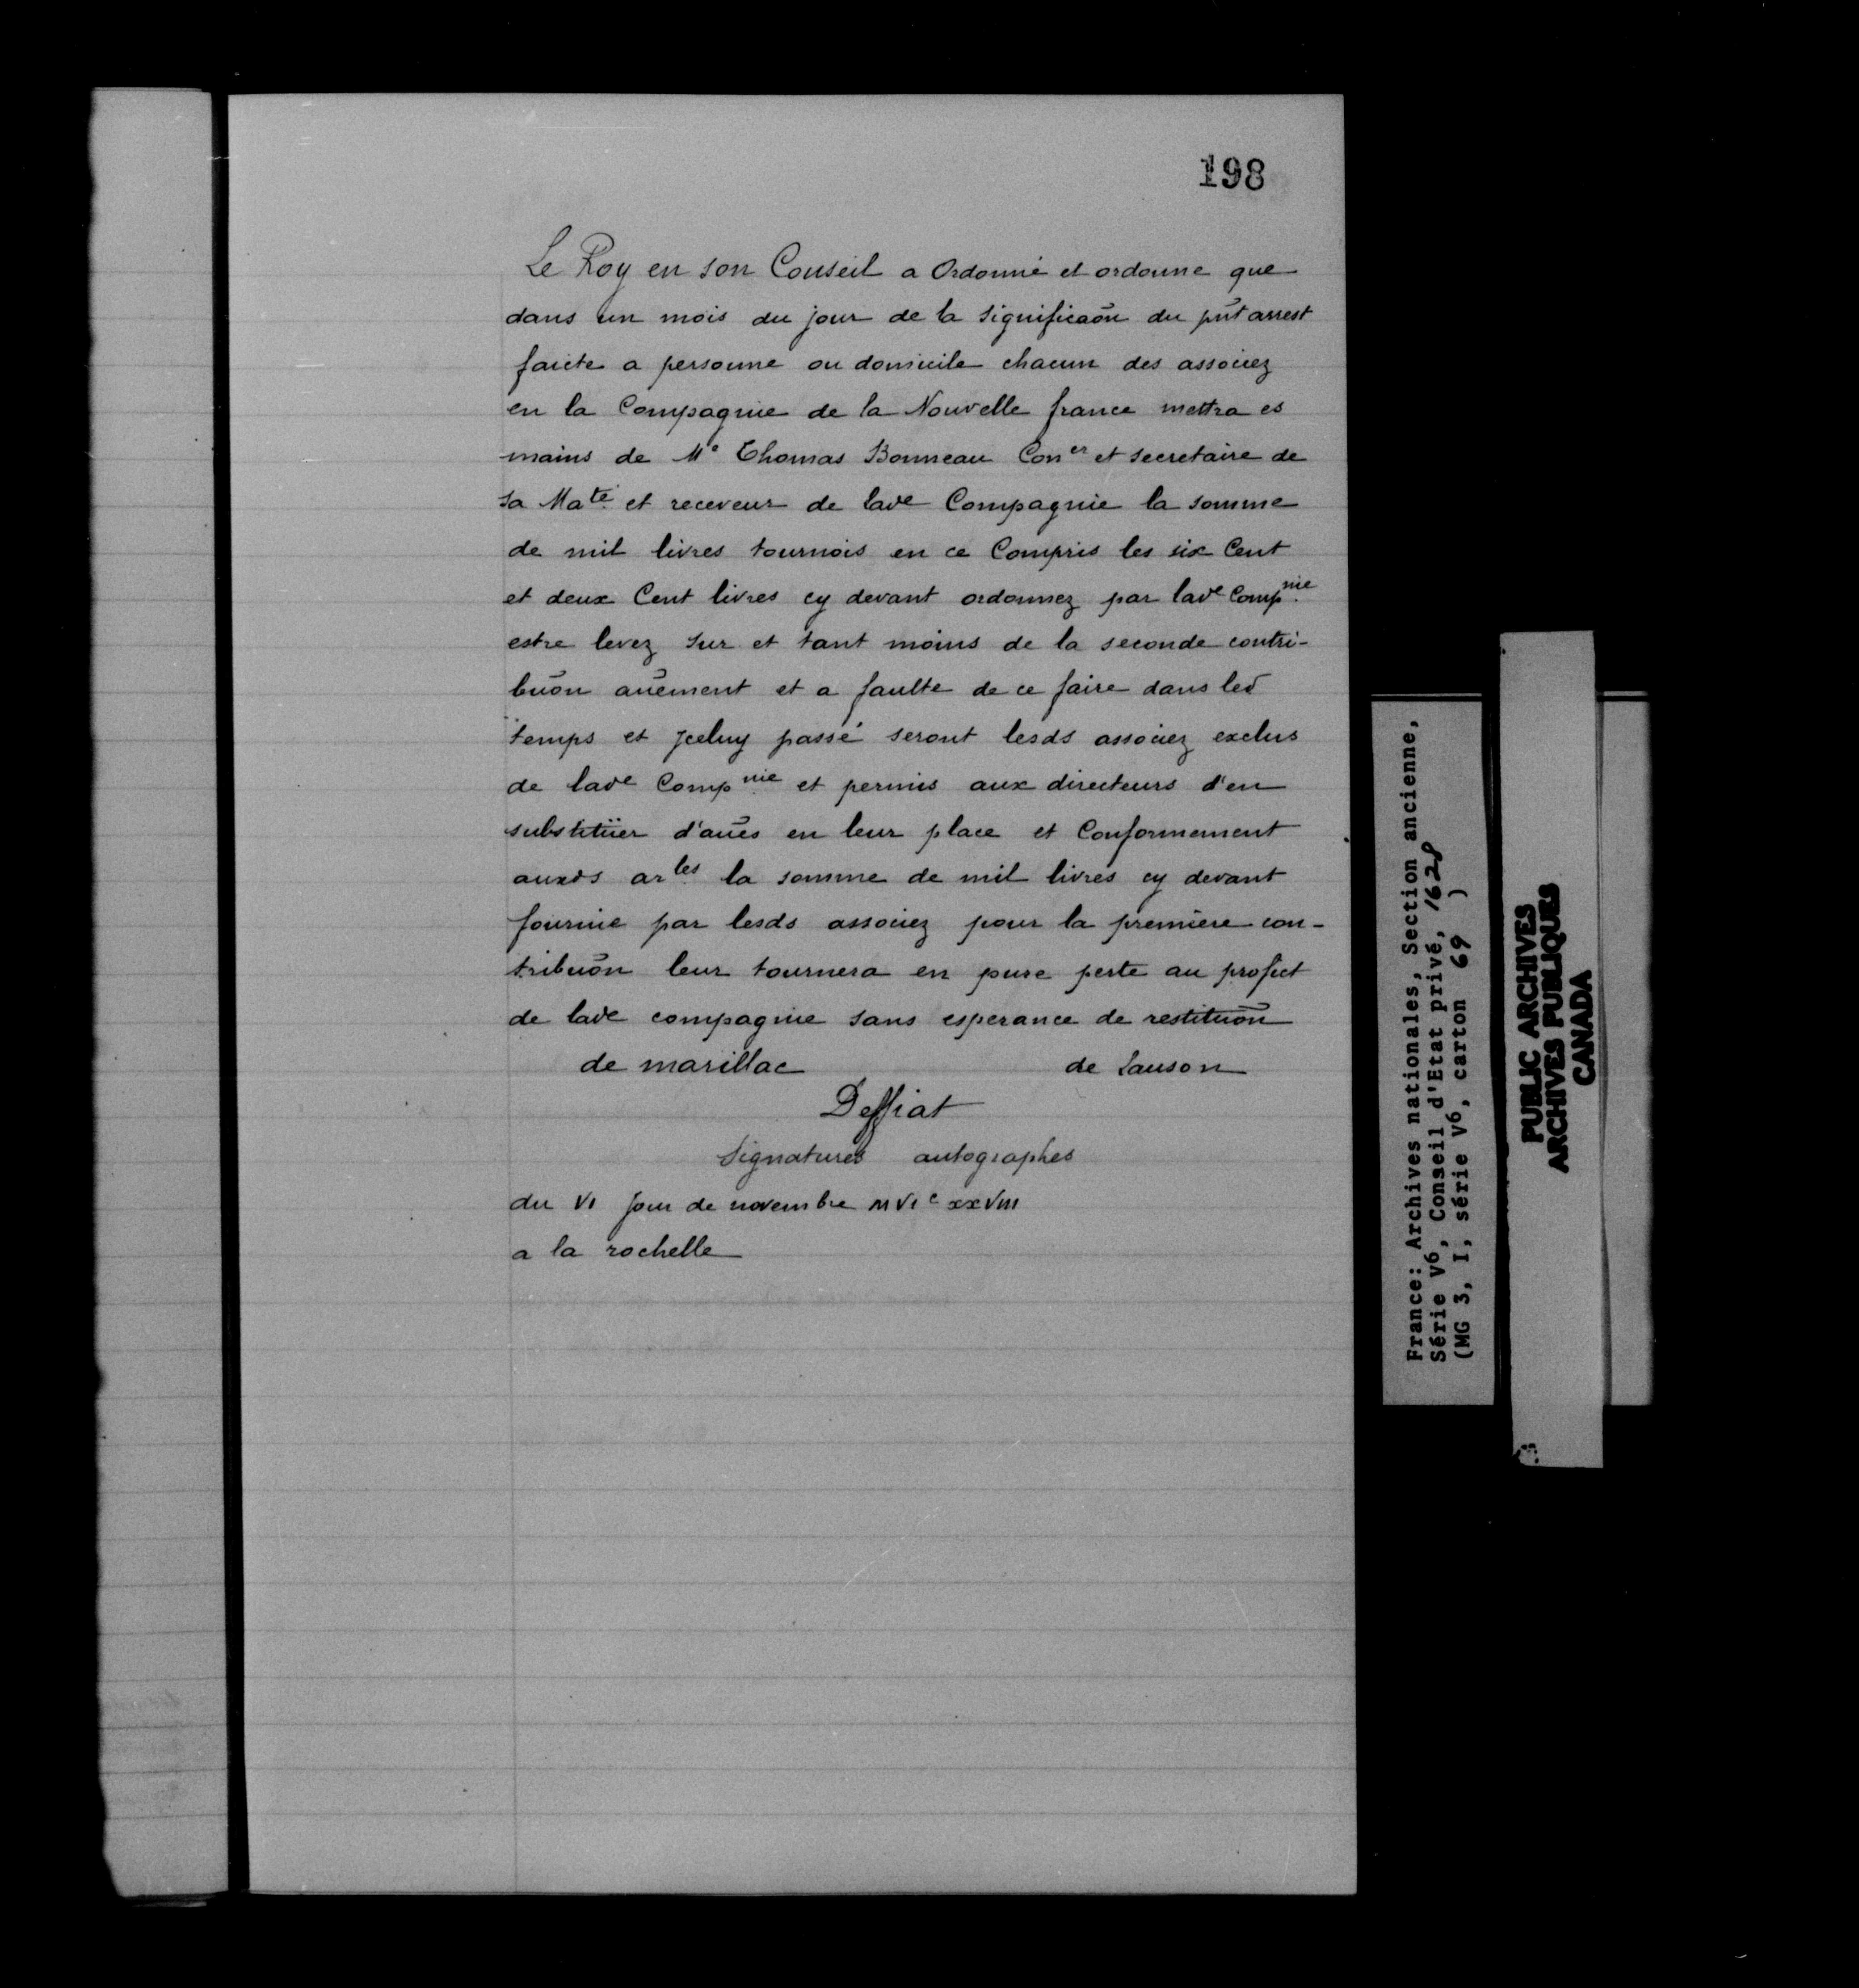 198
Le Roy en son Conseil a Ordonné et ordonne que
dans un mois du jour de la significaōn du pn̄t arrest
faicte a personne ou domicile chacun des associez
en la Compagnie de la Nouvelle france mettra es
mains de Me Thomas Bonneau Coner et secretaire de
sa Maté et receveur de lade Compagnie la somme
de mil livres tournois en ce Compris les six Cent
et deux Cent livres cy devant ordonnez par lade Compnie
estre levez sur et tant moins de la seconde contri-
buōn aūement et a faulte de ce faire dans led
temps et Jceluy passé seront lesds associez exclus
de lade Compnie et permis aux directeurs d'en
substitüer d'aūes en leur place et Conformement
auxds arles la somme de mil livres cy devant
fournie par lesds associez pour la première con-
tribuōn leur tournera en pure perte au profict
de lade compagnie sans esperance de restituōn
de marillac de Lauson
Deffiat
Signatures autographes
du VI Jour de novembre MVIc xxVIII
a la rochelle
France: Archives nationales, Section ancienne,
Série V6, Conseil d'Etat privé, 1628
(MG 3, I, série V6, carton 69 )
PUBLIC ARCHIVES
ARCHIVES PUBLIQUES
CANADA